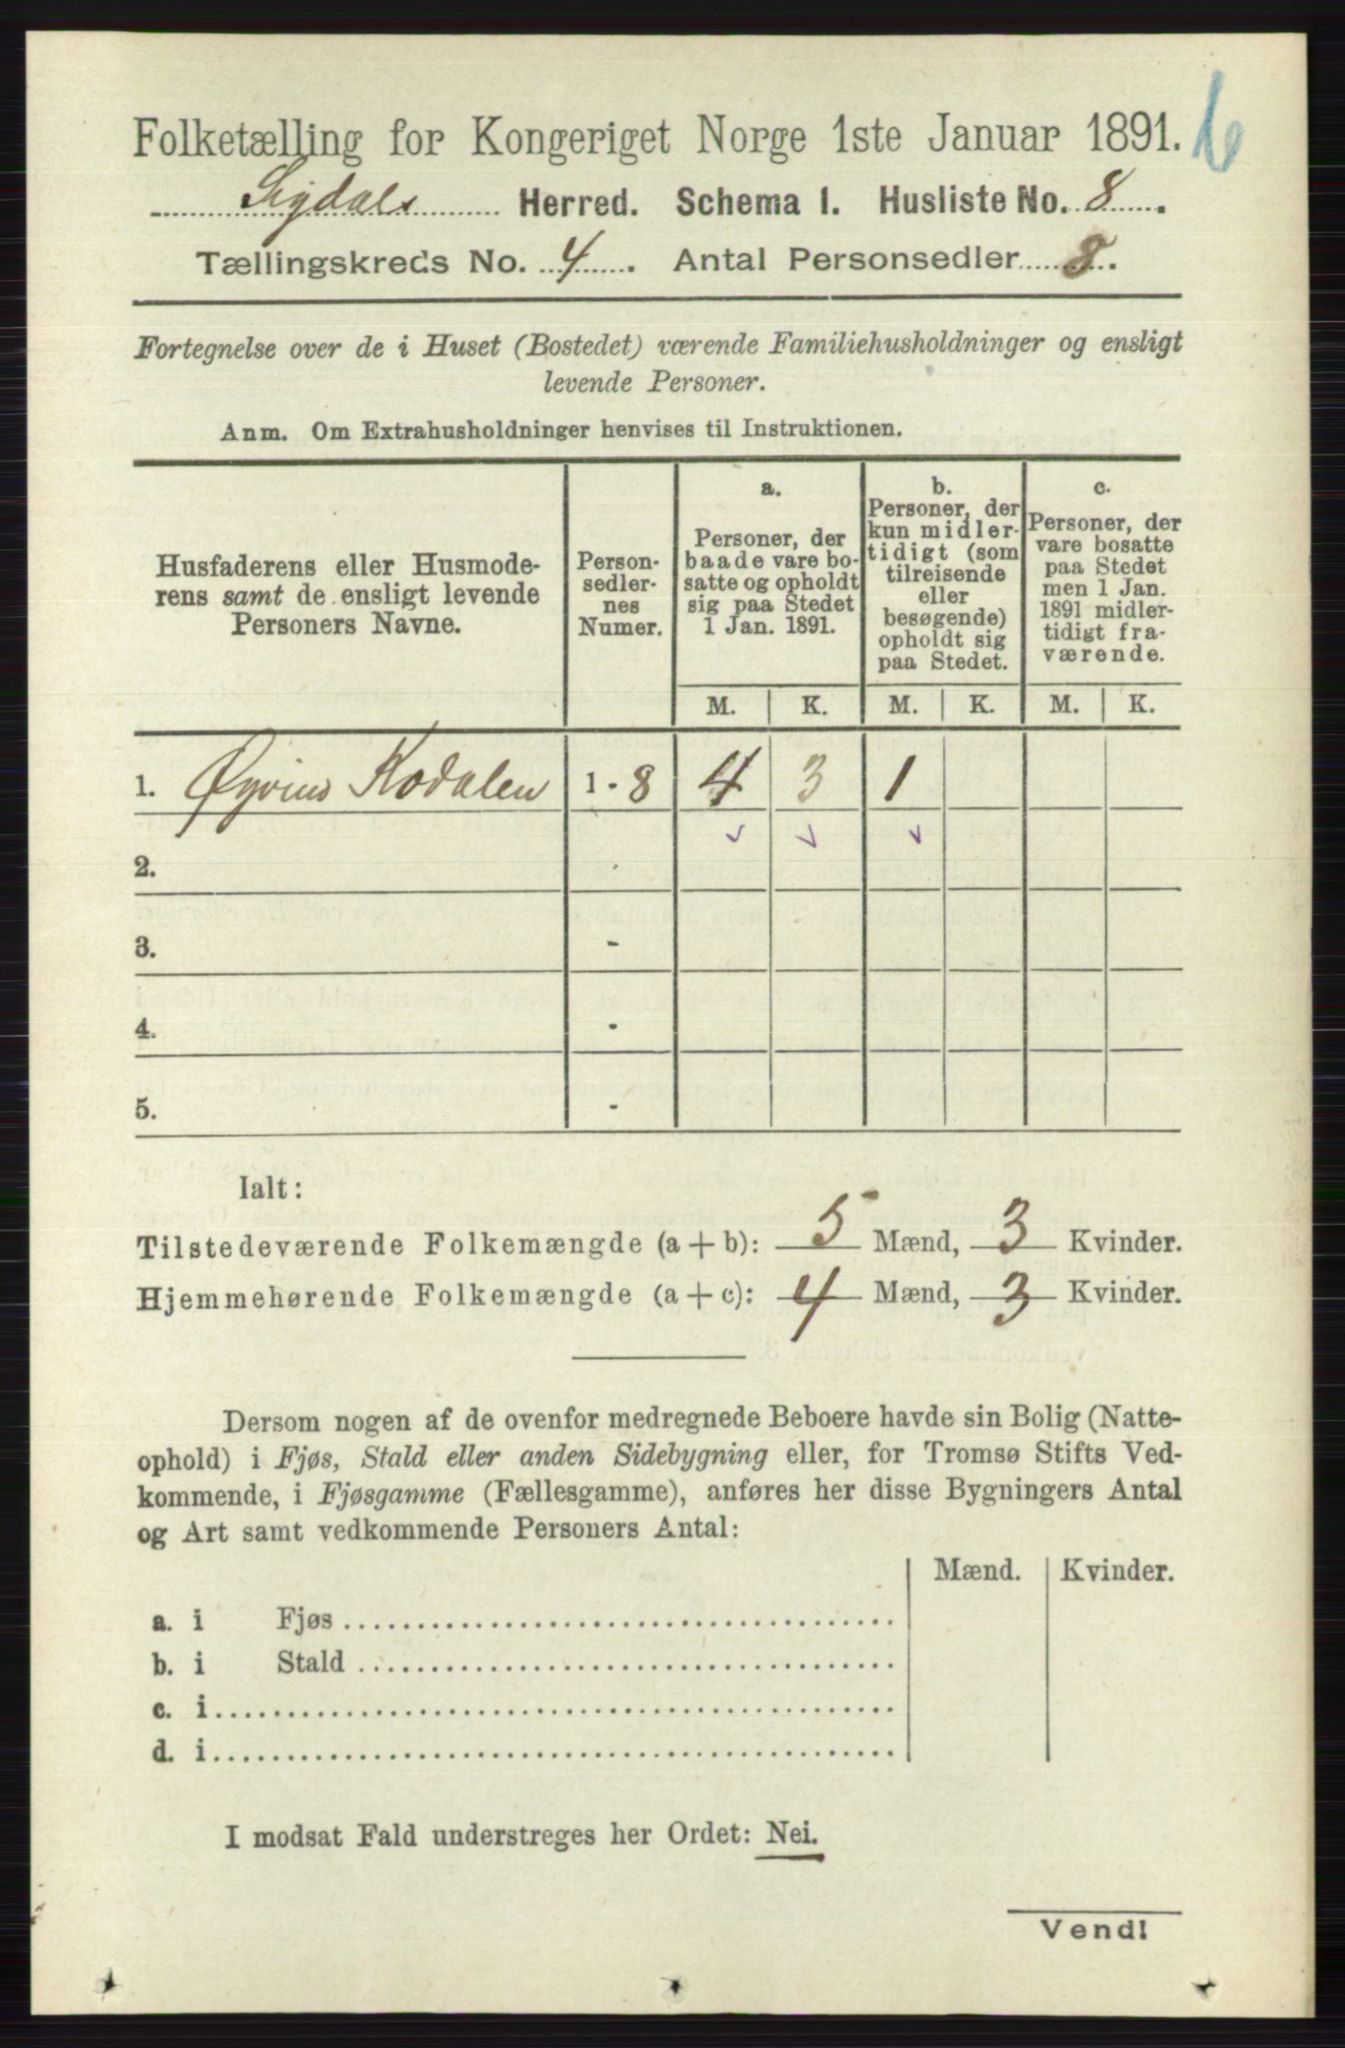 Folketælling for Kongeriget Norge 1ste Januar 1891.
6
Sigdals Herred. Schema 1. Husliste No. 8.
Tællingskreds No. 4. Antal Personsedler 8.
Fortegnelse over de i Huset (Bostedet) værende Familiehusholdninger og ensligt
levende Personer.
Anm. Om Extrahusholdninger henvises til Instruktionen.
Husfaderens eller Husmode-
rens samt de ensligt levende
Personers Navne.
Person-
sedler-
nes
Numer.
a.
Personer, der
baade vare bo-
satte og opholdt
sig paa Stedet
1 Jan. 1891.
b.
Personer, der
kun midler-
tidigt (som
tilreisende
eller
besøgende)
opholdt sig
paa Stedet.
c.
Personer, der
vare bosatte
paa Stedet
men 1 Jan.
1891 midler-
tidigt fra-
værende.
M. K. M. K. M. K.
1. Øyvind Kodalen 1 - 8 4 3 1
2. -
3. -
4. -
5. -
Ialt:
Tilstedeværende Folkemængde (a + b): 5 Mænd, 3 Kvinder.
Hjemmehørende Folkemængde (a + c): 4 Mænd, 3 Kvinder.
Dersom nogen af de ovenfor medregnede Beboere havde sin Bolig (Natte-
ophold) i Fjøs, Stald eller anden Sidebygning eller, for Tromsø Stifts Ved-
kommende, i Fjøsgamme (Fællesgamme), anføres her disse Bygningers Antal
og Art samt vedkommende Personers Antal:
Mænd. Kvinder.
a. i Fjøs
b. i Stald
c. i
d. i
I modsat Fald understreges her Ordet: Nei.
Vend!